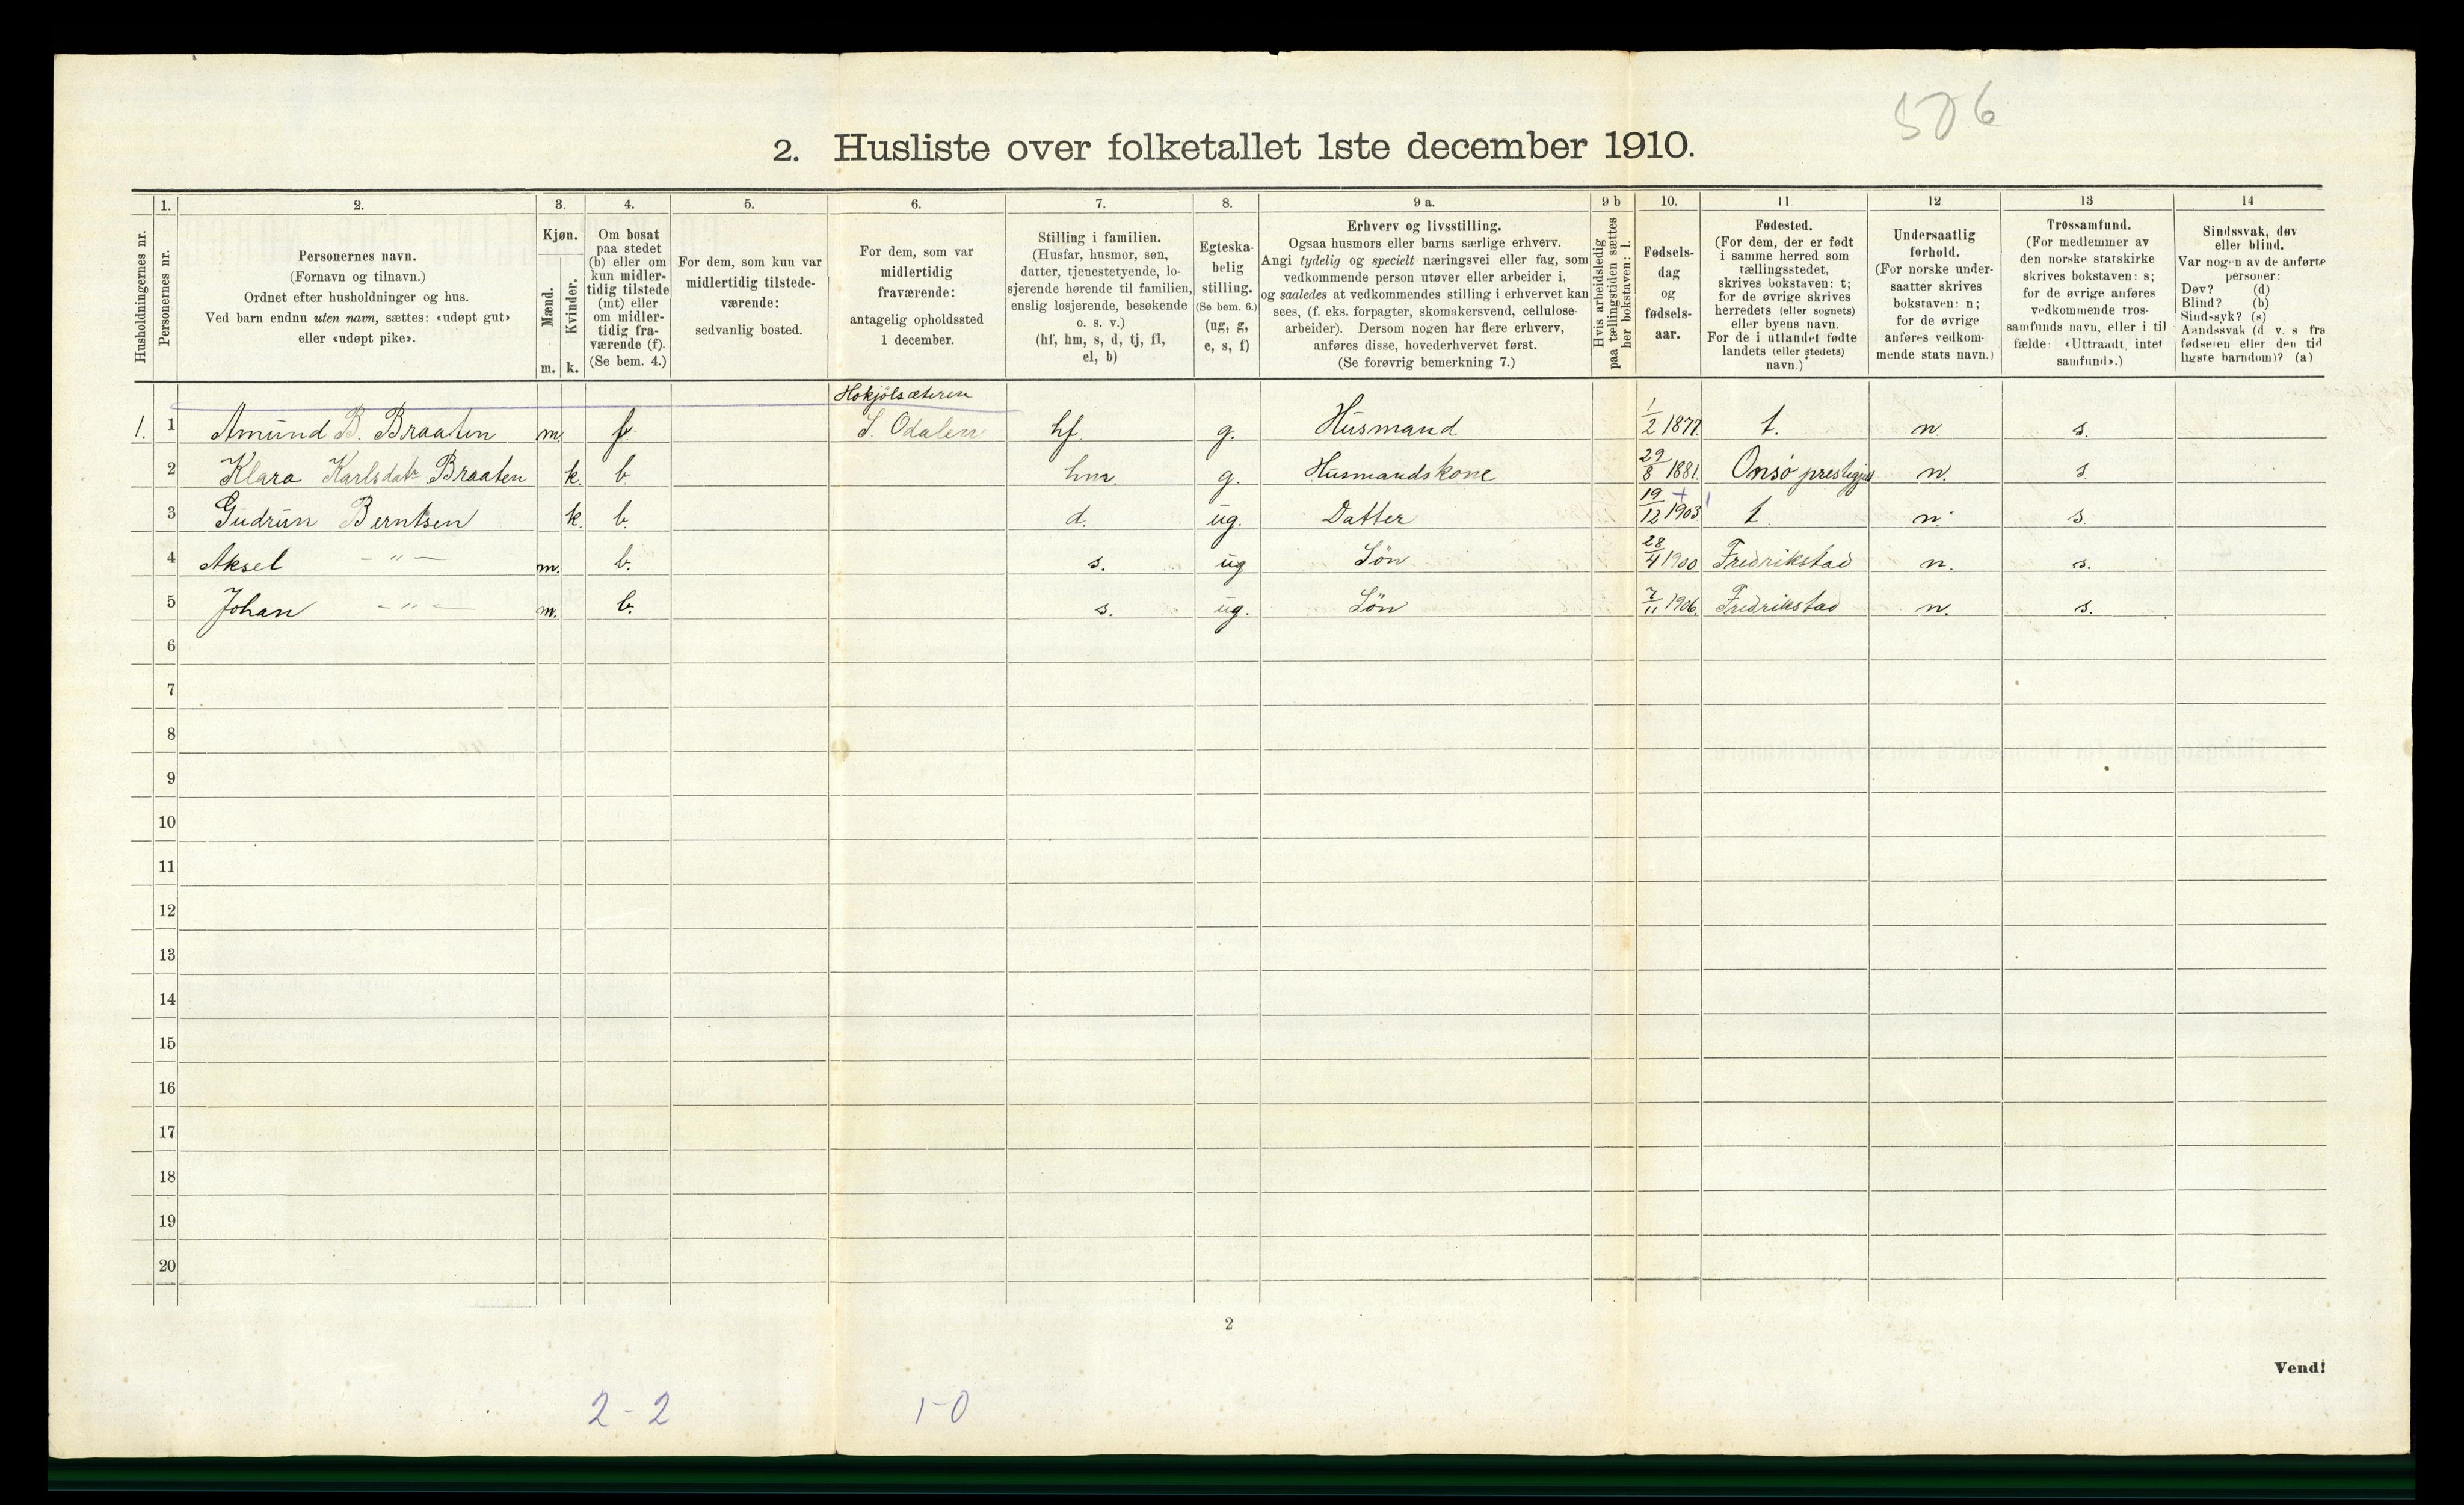 506
2. Husliste over folketallet 1ste december 1910.
Husholdningernes nr.
1.
Personernes nr.
2.
Personernes navn.
(Fornavn og tilnavn.)
Ordnet efter husholdninger og hus.
Ved barn endnu uten navn, sættes: «udøpt gut»
eller «udøpt pike».
3.
Kjøn.
Mænd.
Kvinder.
m. k.
4.
Om bosat
paa stedet
(b) eller om
kun midler-
tidig tilstede
(mt) eller
om midler-
tidig fra-
værende (f).
(Se bem. 4.)
5.
For dem, som kun var
midlertidig tilstede-
værende:
sedvanlig bosted.
6.
For dem, som var
midlertidig
fraværende:
antagelig opholdssted
1 december.
7.
Stilling i familien.
(Husfar, husmor, søn,
datter, tjenestetyende, lo-
sjerende hørende til familien,
enslig losjerende, besøkende
o. s. v.)
(hf, hm, s, d, tj, fl,
el, b)
8.
Egteska-
belig
stilling.
(Se bem. 6.)
(ug, g,
e, s, f)
9 a.
Erhverv og livsstilling.
Ogsaa husmors eller barns særlige erhverv.
Angi tydelig og specielt næringsvei eller fag, som
vedkommende person utøver eller arbeider i,
og saaledes at vedkommendes stilling i erhvervet kan
sees, (f. eks. forpagter, skomakersvend, cellulose-
arbeider). Dersom nogen har flere erhverv,
anføres disse, hovederhvervet først.
(Se forøvrig bemerkning 7.)
9 b
Hvis arbeidsledig
paa tællingstiden sættes
her bokstaven: l.
10.
Fødsels-
dag
og
fødsels-
aar.
11
Fødested.
(For dem, der er født
i samme herred som
tællingsstedet,
skrives bokstaven: t;
for de øvrige skrives
herredets (eller sognets)
eller byens navn.
For de i utlandet fødte
landets (eller stedets)
navn.)
12
Undersaatlig
forhold.
(For norske under-
saatter skrives
bokstaven: n;
for de øvrige
anføres vedkom-
mende stats navn.)
13
Trossamfund.
(For medlemmer av
den norske statskirke
skrives bokstaven: s;
for de øvrige anføres
vedkommende tros-
samfunds navn, eller i til
fælde: «Uttraadt, intet
samfund».)
14
Sindssvak, døv
eller blind.
Var nogen av de anførte
personer:
Døv? (d)
Blind? (b)
Sindssyk? (s)
Aandssvak (d v. s fra
fødselen eller den tid
ligste barndom)? (a)
Hokjölsæteren
1. 1 Amund B. Braaten m f S. Odalen hf. g. Husmand 1/2 1877. t. n s.
2 Klara Karlsdatr Braaten k. b hm. g. Husmandskone 29/8 1881. Onsö prestegjeld n. s.
3 Gudrun Berntsen k. b. d. ug. Datter 19/12 1903 t n. s.
4 Aksel - " - m. b. s. ug Sön 28/4 1900 Fredrikstad n. s.
5 Johan - " - m. b. s. ug. Sön 7/11 1906. Fredrikstad n. s.
6
7
8
9
10
11
12
13
14
15
16
17
18
19
20
2
Vend!
2-2 1-0